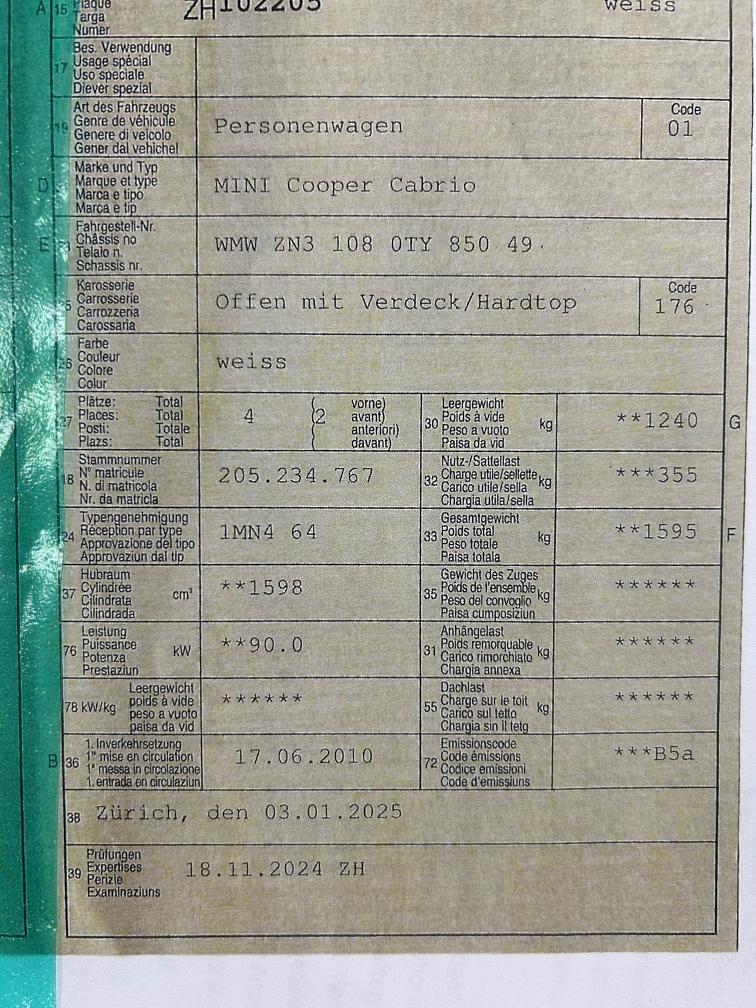 A 15 Plaque
Targa
Numer
ZH102205
weiss
17
Bes. Verwendung
Usage spécial
Uso speciale
Diever spezial
19
Art des Fahrzeugs
Genre de véhicule
Genere di veicolo
Gener dal vehichel
Personenwagen
Code
01
D
Marke und Typ
Marque et type
Marca e tipo
Marca e tip
MINI Cooper Cabrio
E
Fahrgestell-Nr.
Châssis no
Telaio n.
Schassis nr.
WMW ZN3 108 0TY 850 49
Karosserie
Carrosserie
Carrozzeria
Carossaria
Offen mit Verdeck/Hardtop
Code
176
26
Farbe
Couleur
Colore
Colur
weiss
27
Plätze: Total
Places: Total
Posti: Totale
Plazs: Total
4
(2
vorne)
avant)
anteriori)
davant)
30
Leergewicht
Poids à vide
Peso a vuoto
Paisa da vid
kg
**1240
G
18
Stammnummer
N° matricule
N. di matricola
Nr. da matricla
205.234.767
32
Nutz-/Sattellast
Charge utile/sellette
Carico utile/sella
Chargia utila/sella
kg
***355
24
Typengenehmigung
Réception par type
Approvazione del tipo
Approvaziun dal tip
1MN4 64
33
Gesamtgewicht
Poids total
Peso totale
Paisa totala
kg
**1595
F
37
Hubraum
Cylindrée
Cilindrata
Cilindrada
cm³
**1598
35
Gewicht des Zuges
Poids de l'ensemble
Peso del convoglio
Paisa cumposiziun
kg
******
76
Leistung
Puissance
Potenza
Prestaziun
kW
**90.0
31
Anhängelast
Poids remorquable
Carico rimorchiato
Chargia annexa
kg
******
78 kW/kg
Leergewicht
poids à vide
peso a vuoto
paisa da vid
******
55
Dachlast
Charge sur le toit
Carico sul tetto
Chargia sin il tetg
kg
******
B 36
1. Inverkehrsetzung
1re mise en circulation
1a messa in circolazione
1. entrada en circulaziun
17.06.2010
72
Emissionscode
Code émissions
Codice emissioni
Code d'emissiuns
***B5a
38 Zürich, den 03.01.2025
39
Prüfungen
Expertises
Perizie
Examinaziuns
18.11.2024 ZH